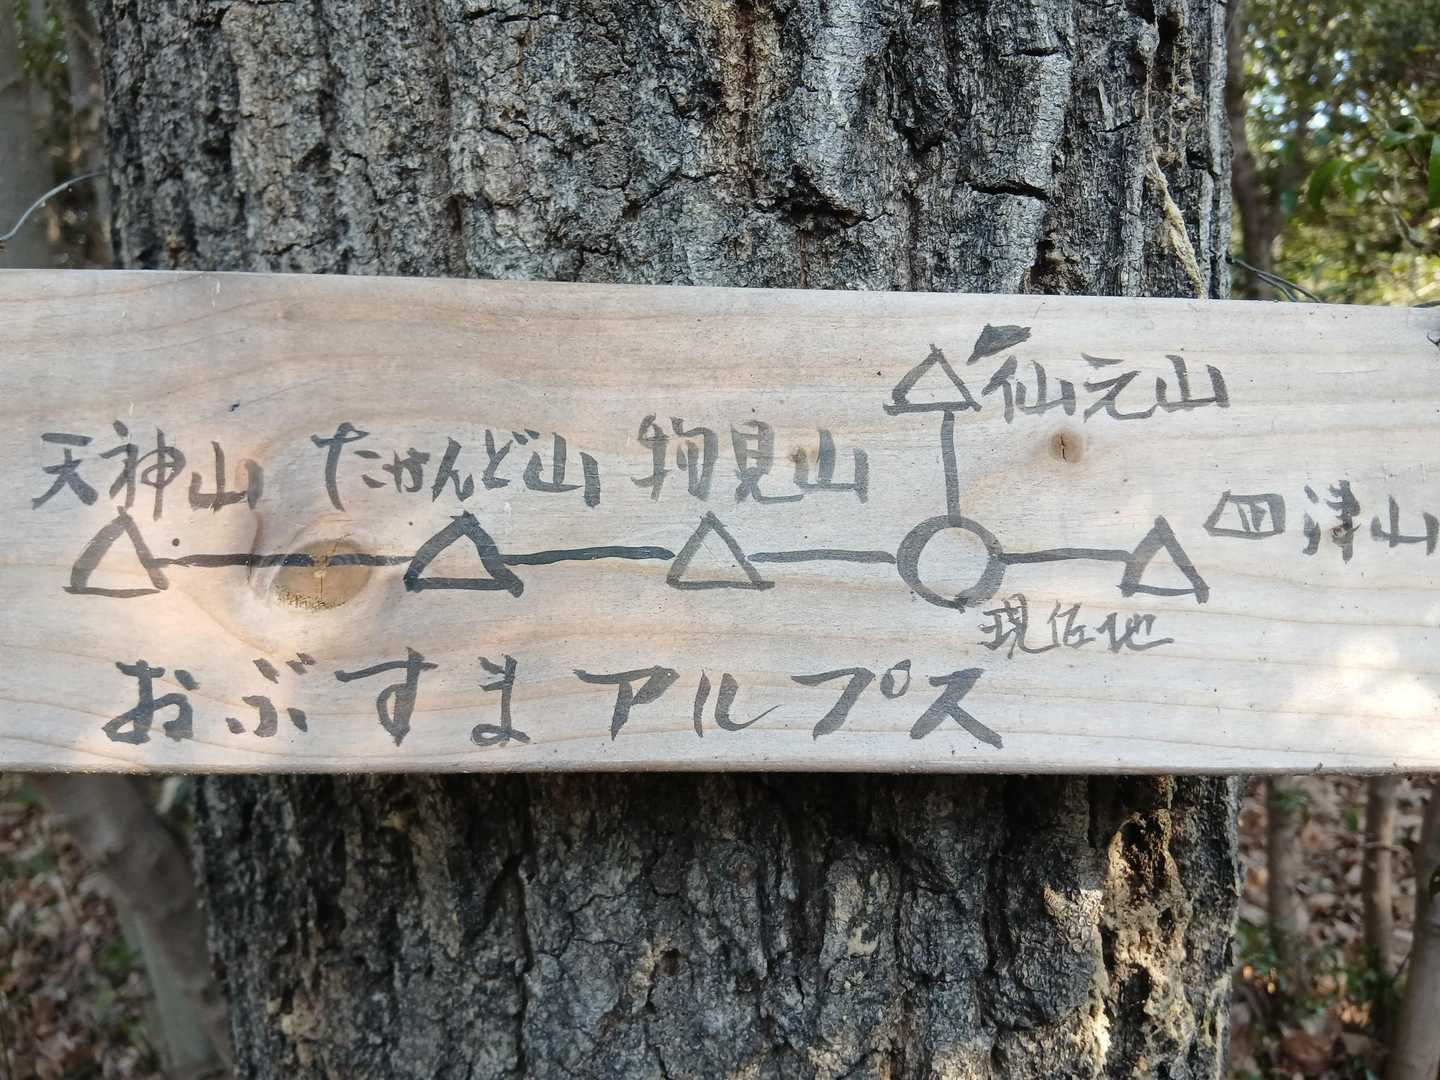 仙元山
天神山 たかんど山 物見山
四津山
現在地
おぶすまアルプス